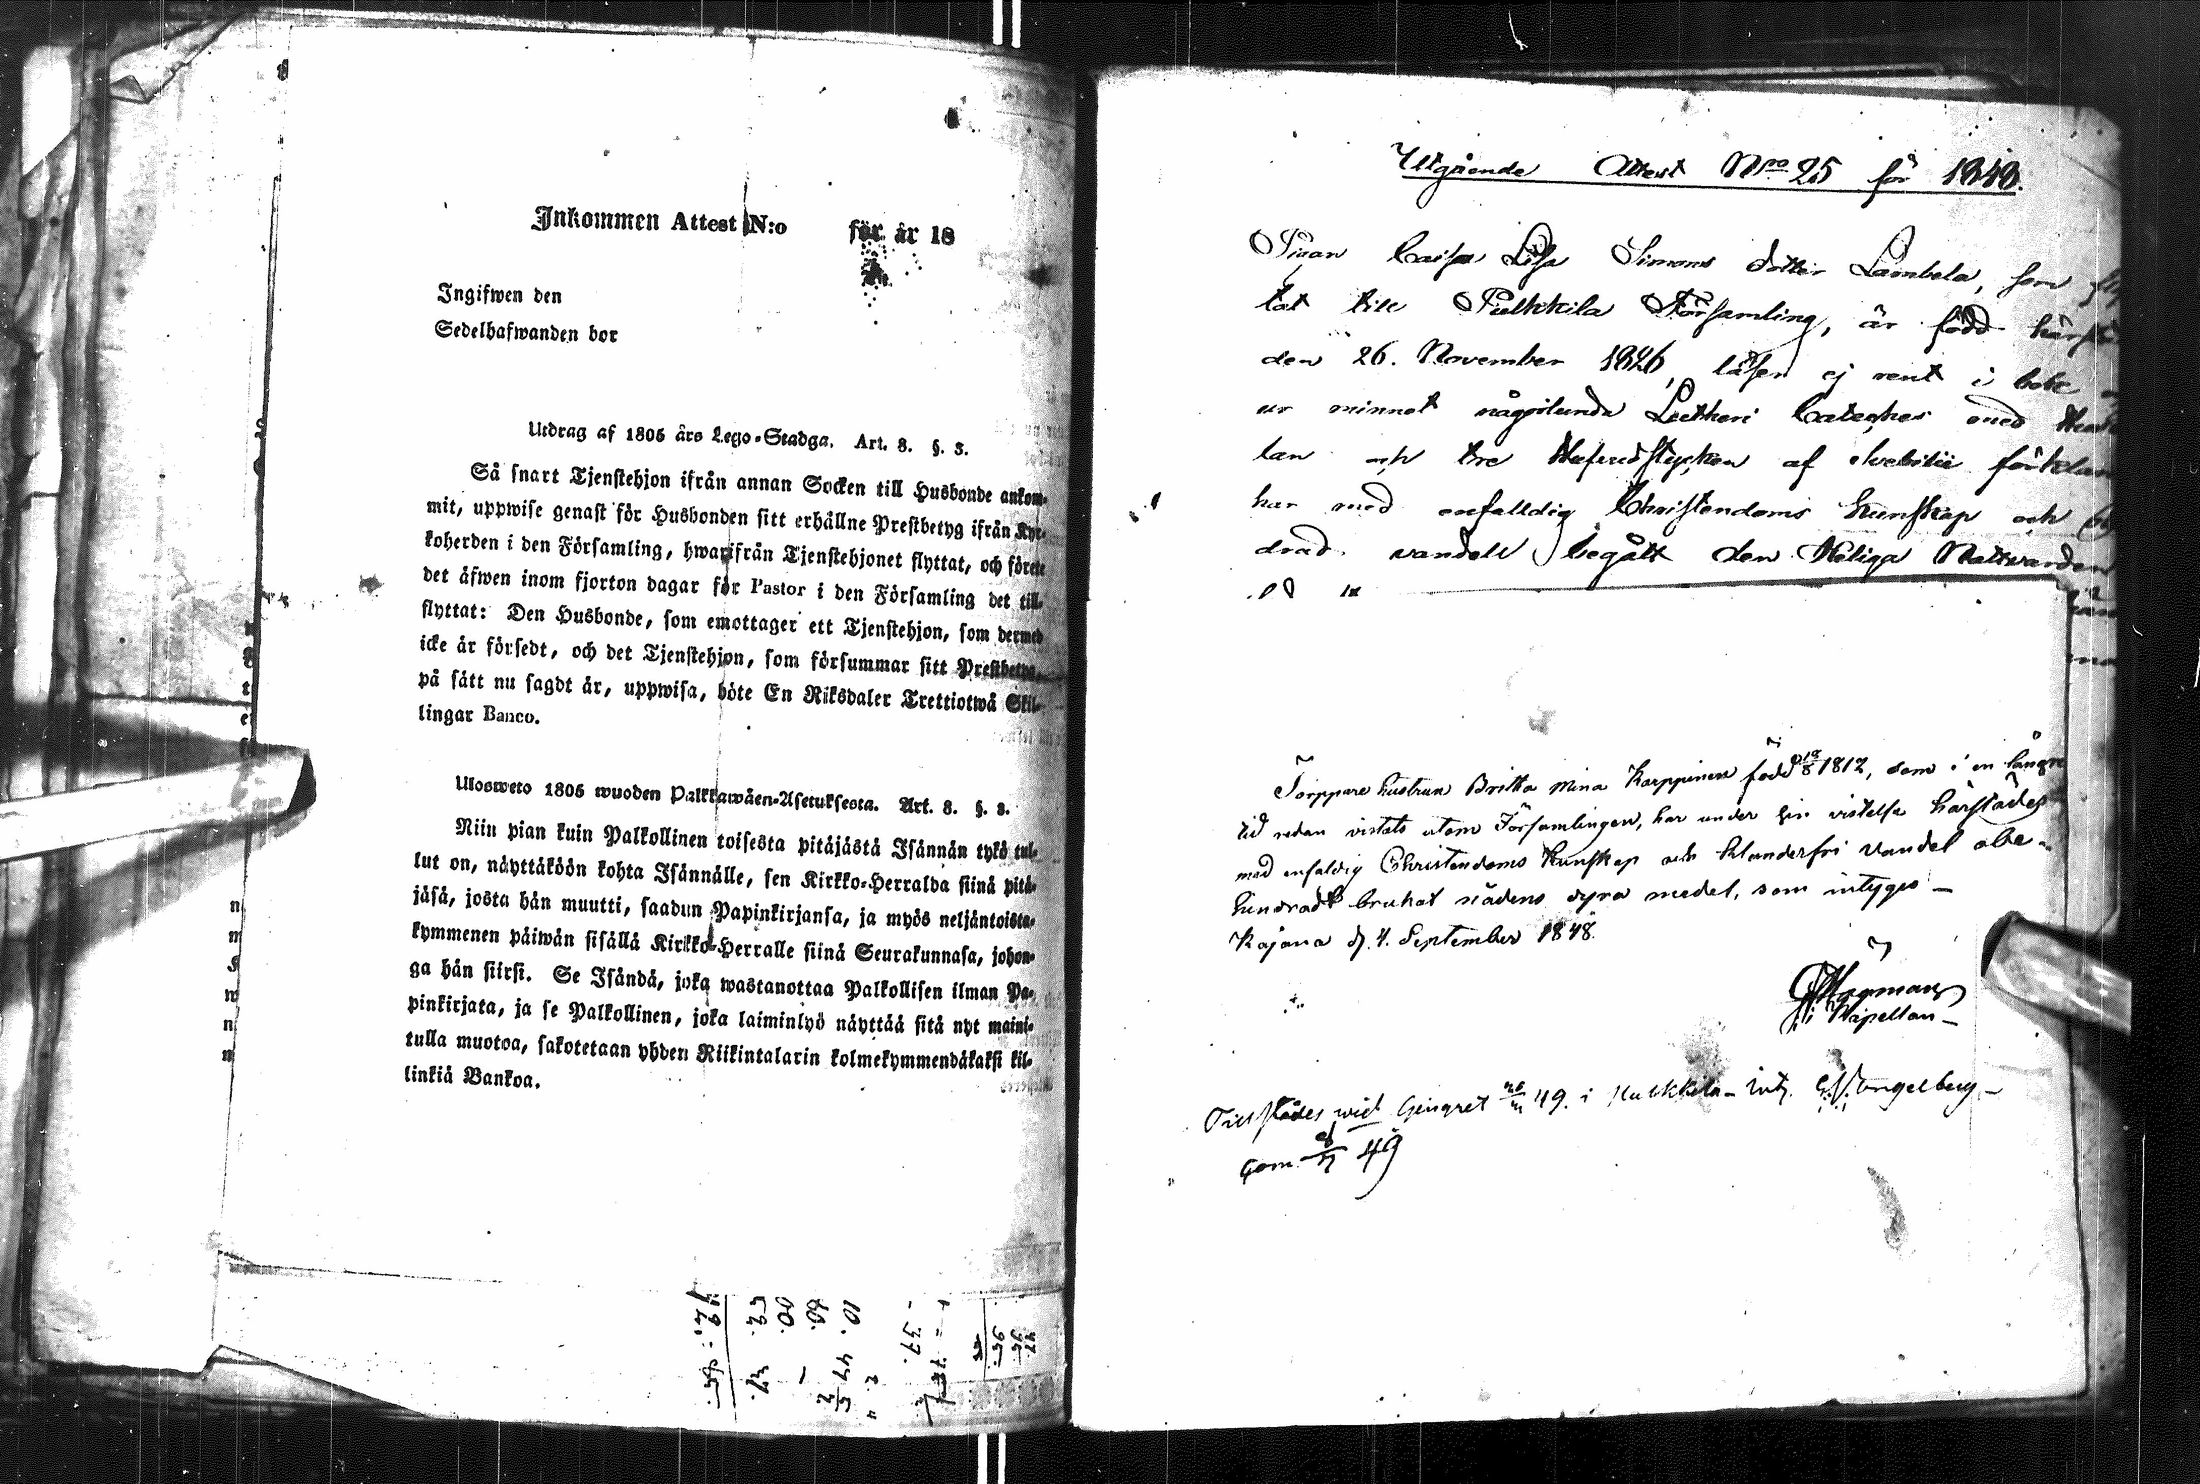 Inkommen Attest N:o för år 18
Ingifwen den
Sedelhafwanden bor
Utdrag af 1805 års Lego-Stadga. Art. 8. §. 3.
Så snart Tjenstehjon ifrån annan Socken till Husbonde ankom-
mit, uppwise genast för Husbonden sitt erhållne Prestbetyg ifrån Kyr-
koherden i den Församling, hwarifrån Tjenstehjonet flyttat, och förete
det äfwen inom fjorton dagar för Pastor i den Församling det till-
flyttat: Den Husbonde, som emottager ett Tjenstehjon, som dermed
icke är försedt, och det Tjenstehjon, som försummar sitt Prestbetyg,
på sätt nu sagdt är, uppwisa, böte En Riksdaler Trettiotwå Skil-
lingar Banco.
Ulosweto 1805 wuoden Palkkawäen-Asetuksesta. Art. 8. §. 3.
Niin pian kuin Palkollinen toisesta pitäjästä Isännän tykö tul-
lut on, näyttäköön kohta Isännälle, sen Kirkko-Herralda siinä pitä-
jäsä, josta hän muutti, saadun Papinkirjansa, ja myös neljäntoista-
kymmenen päiwän sisällä Kirkko-Herralle siinä Seurakunnasa, johon-
ga hän siirsi. Se Isändä, joka wastanottaa Palkollisen ilman Pa-
pinkirjata, ja se Palkollinen, joka laiminlyö näyttää sitä nyt maini-
tulla muotoa, sakotetaan yhden Riikintalarin kolmekymmendäkaksi kil-
linkiä Bankoa.
Utgående Attest Nro 25 för 1848.
Pigan Caisa Lisa Simons dotter Lambela, som
tat till Pulkkila Församling, är född
den 26. November 1826, läser ej rent i bok
ur minnet någorlunda Lutheri Cateches med
lan och tre Hufvudstycken af Svebilii
har med enfalldig Christendoms kunskap och
drad vandell begått den Heliga Nattvarden
Torppare hustrun Britta Mina Karppinen född 1812, som i en längre
tid redan vistats utom Församlingen, har under sin vistelse härstädes
med enfaldig Christendoms kunskap och klanderfri vandel obe-
hindradt brukat nådens dyra medel, som intygas
Kajana d. 4. September 1848.
Hagman
Kapellan
Tillstädes wid Gingret 49. i Pulkkila Int. Engelberg
49